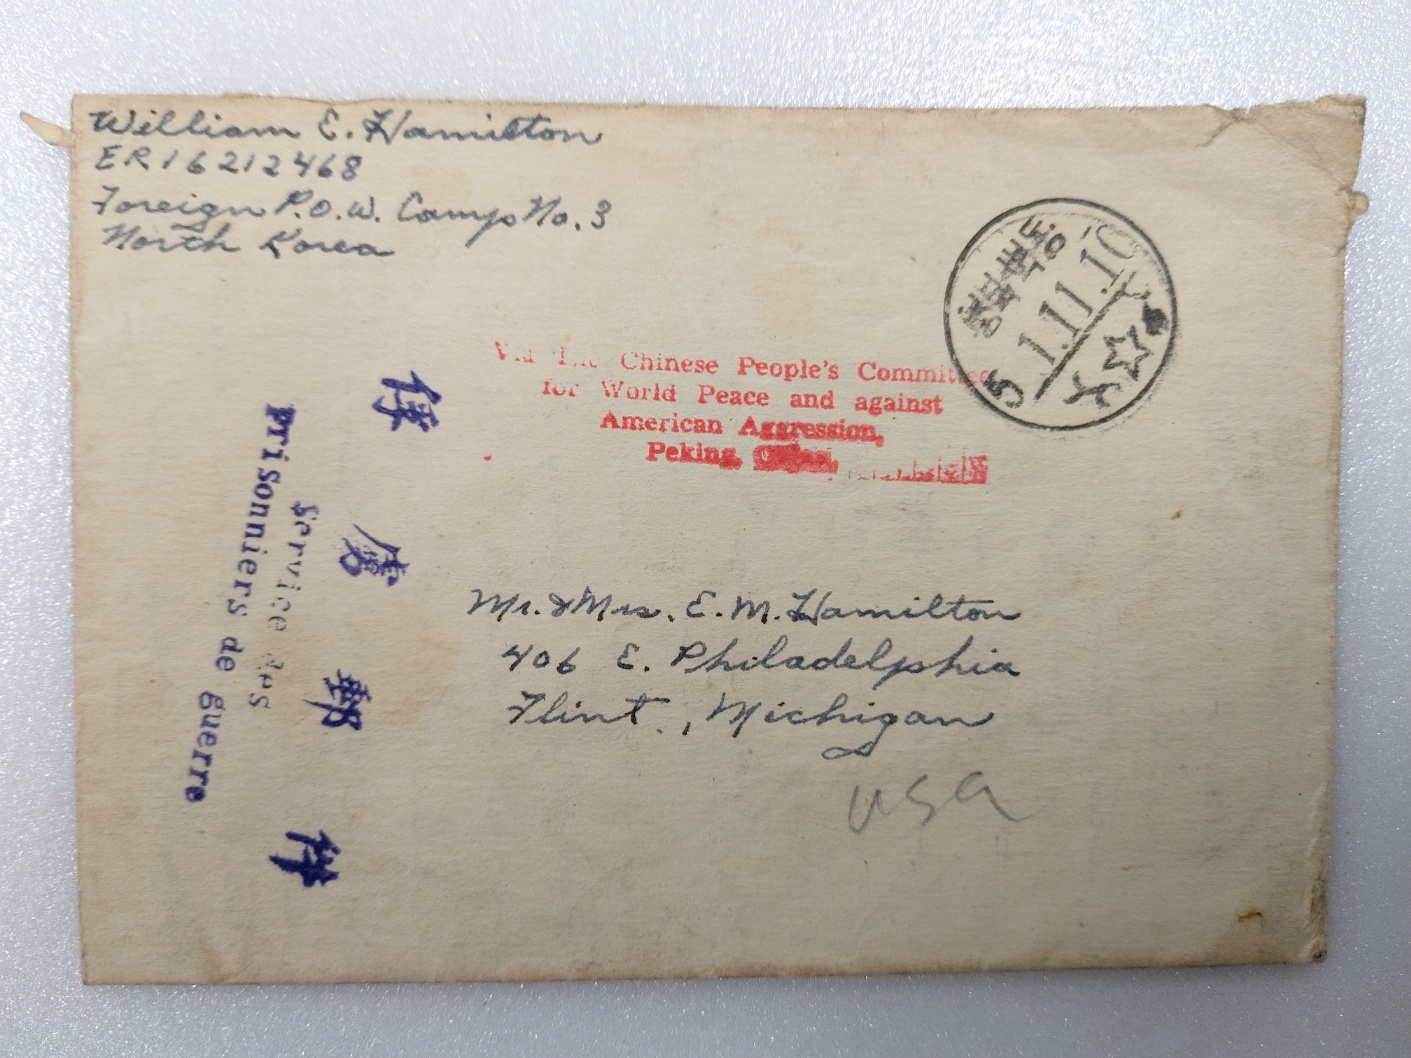 William E. Hamilton
ER16212468
Foreign P.O.W. Camp No. 3
North Korea
51.11.10
Via The Chinese People's Committee
for World Peace and against
American Aggression,
Peking,
俘虜郵件
Service des
prisonniers de guerre
Mr. & Mrs. E. M. Hamilton
406 E. Philadelphia
Flint, Michigan
USA